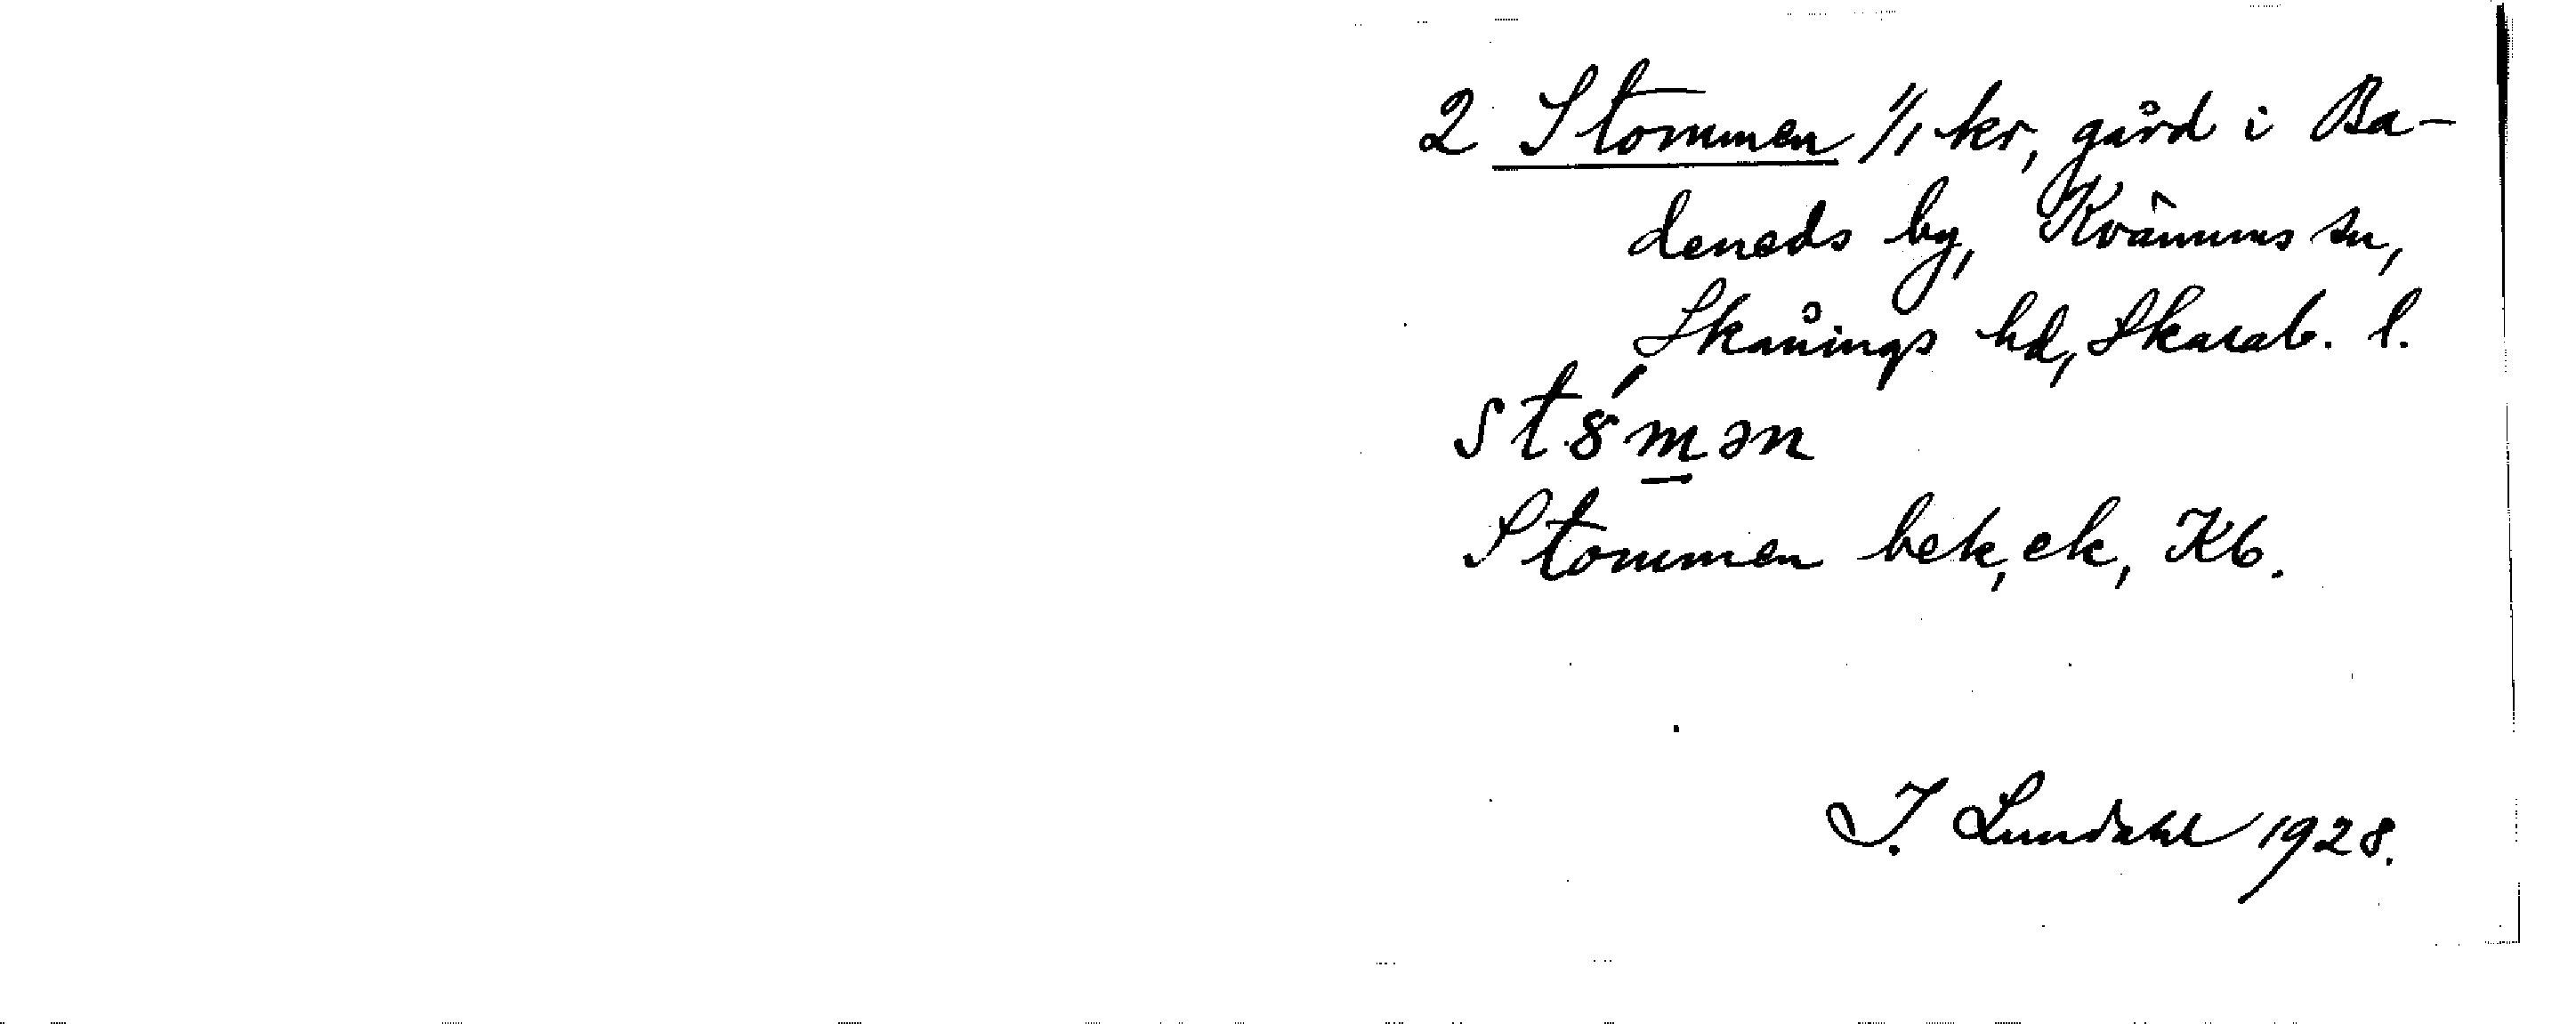 2 Stommen 1/1 kr, gård i Ba-
deneds by, Kvänums sn,
Skånings hd, Skarab. l.
st8́m̲ən
Stommen bek, ek, Kb.
I. Lundahl 1928.